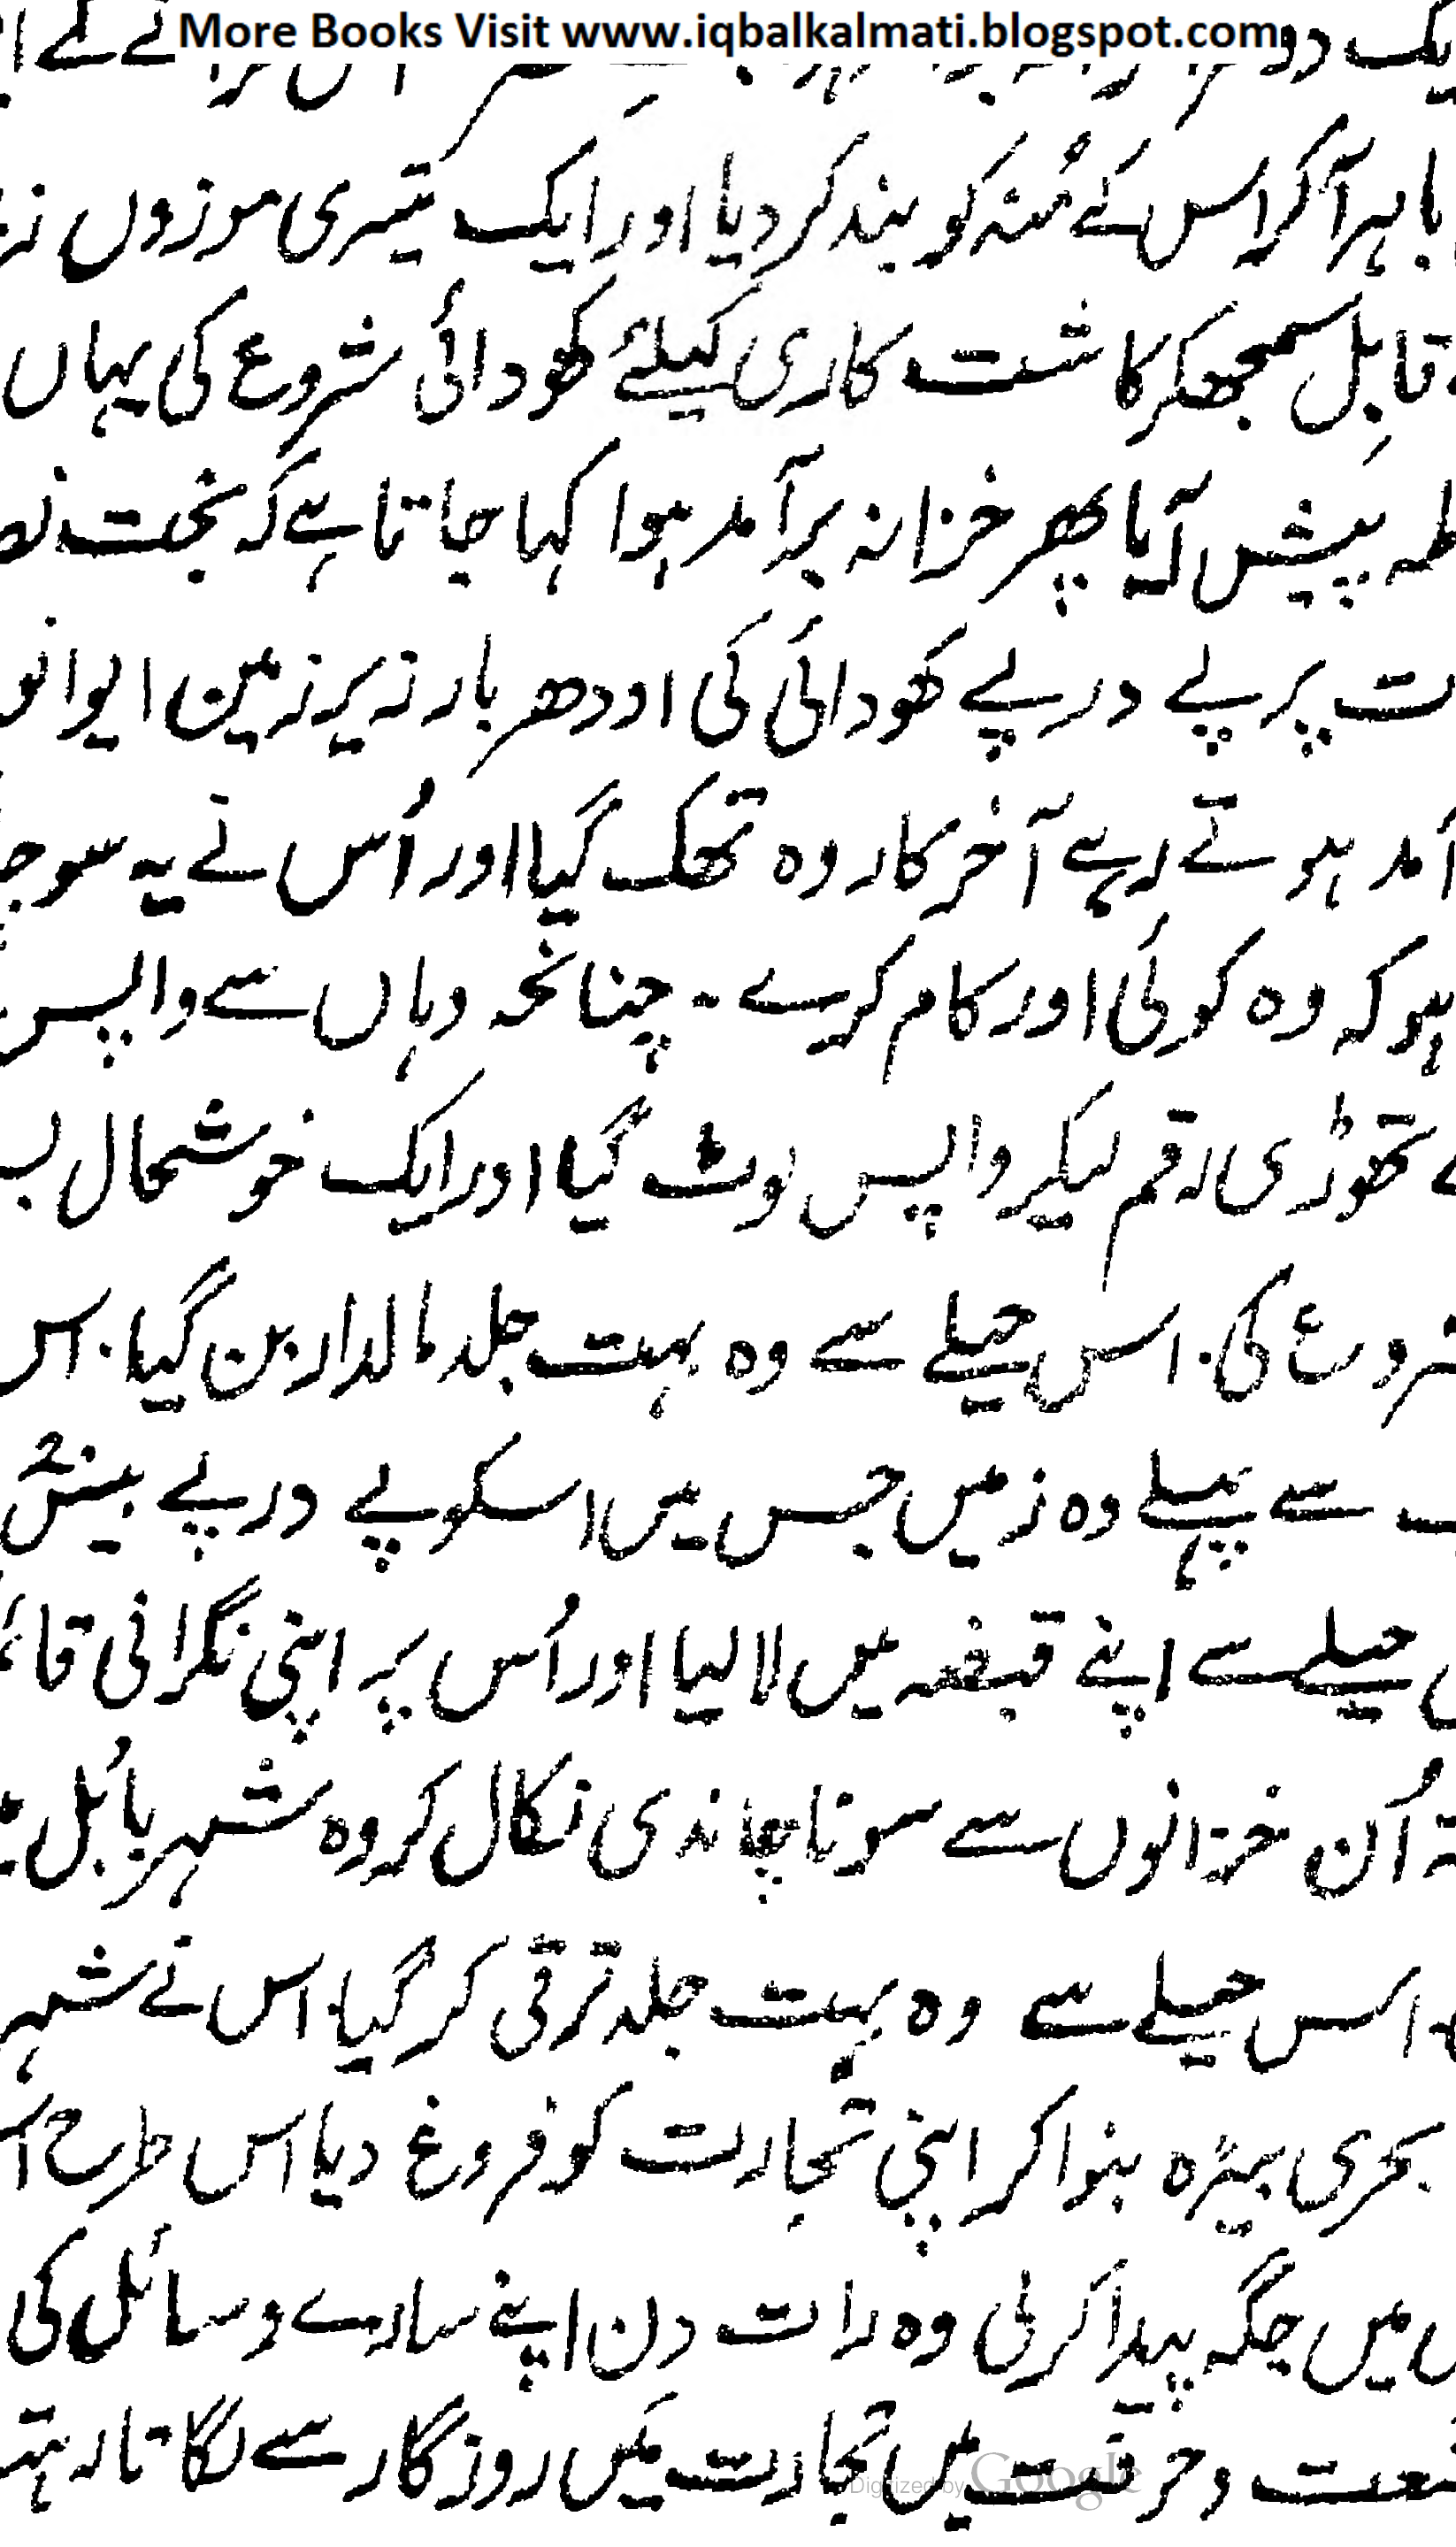 More Books Visit www.iqbalkalmati.blogspot.com
باہر آکر اس کے مُنہ کو بند کر دیا اور ایک تیسری موزوں
قابِل سمجھکر کاشت کاری کیلئے کھودائی شروع کی یہاں
پیش آیا پھر خزانہ برآمد ہوا کہا جاتا ہے کہ بخت
پر پے درپے کھودائی کی اودھر بار زیر زمین ایوانو
آمد ہوتے رہے آخرکار وہ تھک گیا اور اُس نے یہ سوچ
ہو کہ وہ کوئی اور کام کرے ۔ چنانچہ وہاں سے واپس
تھوڑی رقم لیکر واپس لوٹ گیا اور ایک خوشحال
شروع کی۔ اس حیلے سے وہ بہت جلد مالدار بن گیا۔ اس
سے پہلے وہ زمیں جس میں اسکو پے درپے
حیلے سے اپنے قبضہ میں لا لیا اور اُس پر اپنی نگرانی
اُن خزانوں سے سونا چاندی نکال کر وہ شہر بابُل
اس حیلے سے وہ بہت جلد ترقی کر گیا۔ اس نے شہر
بحری بیڑہ بنوا کر اپنی تجارت کو فروغ دیا اس طرح
میں جگہ پیدا کرلی وہ رات دن اپنے سارے وسائل کی
وحرفت میں تجارت میں روزگار سے لگاتا
Digitized by Google